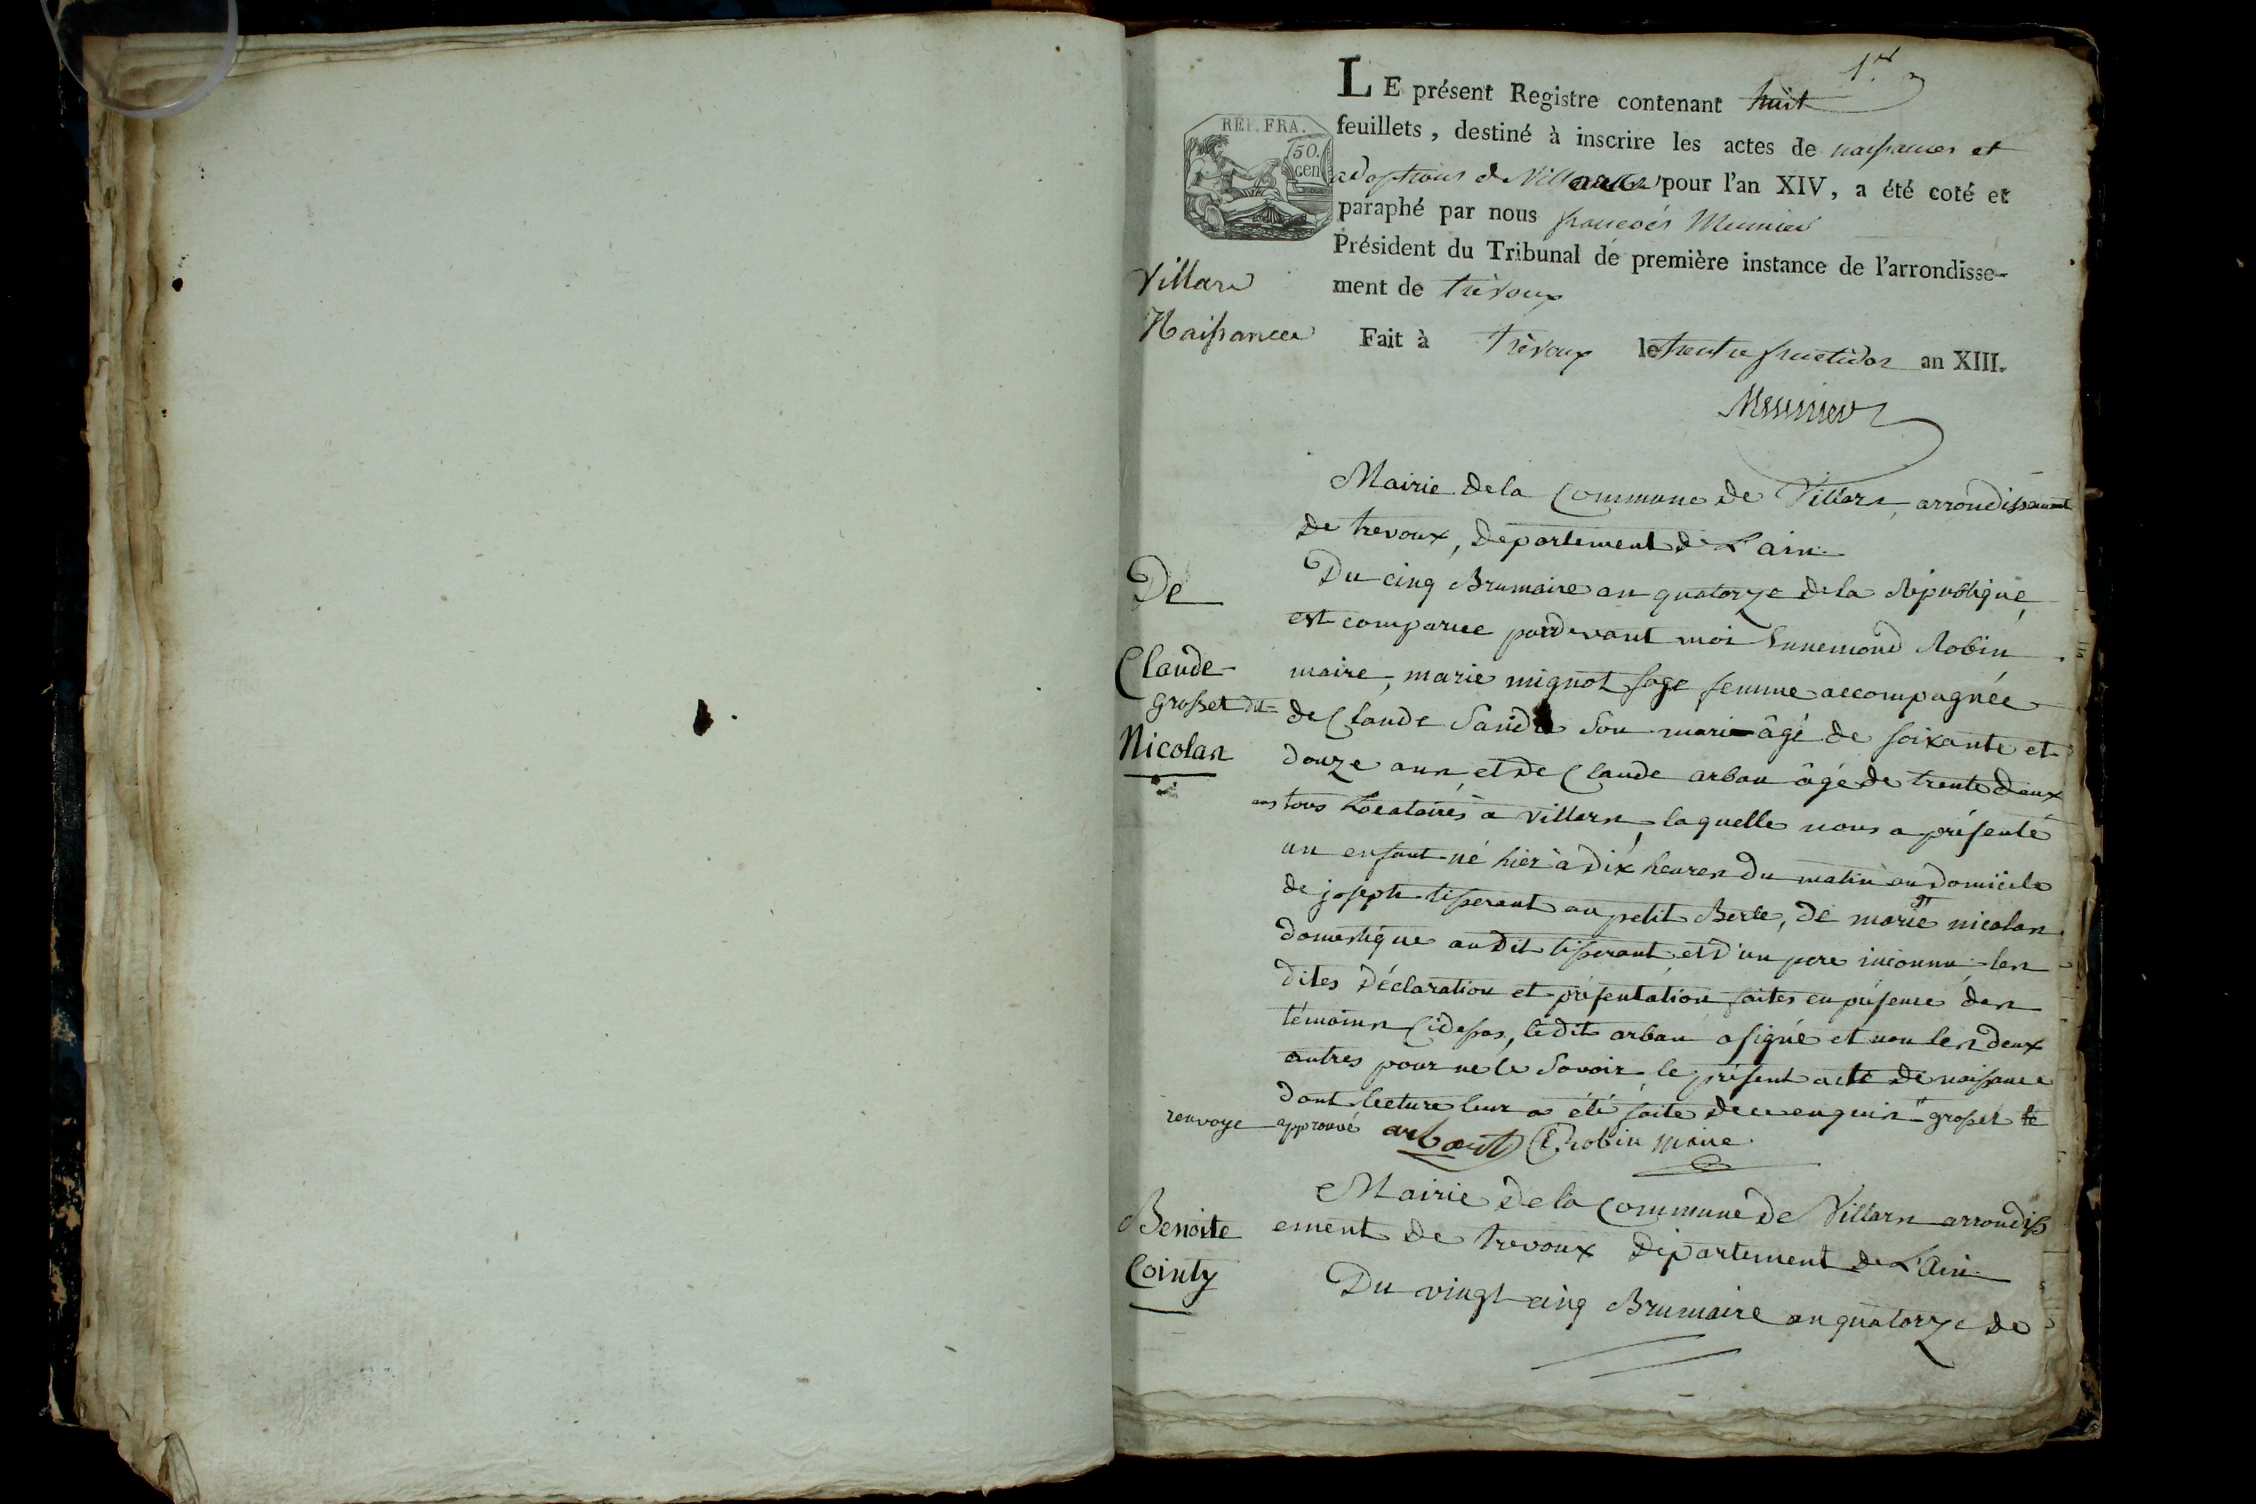 1er
LE présent Registre contenant huit
feuillets, destiné à inscrire les actes de naissances et
adoptions de Villars pour l'an XIV, a été coté et
paraphé par nous françois Meunier
Président du Tribunal de première instance de l'arrondisse-
ment de trévoux
Fait à trévoux le trente fructidor an XIII.
Meunier
REP. FRA.
50.
cen
Villars
Naissances
Mairie de la Commune de Villars, arrondissement
de trevoux, département de L'ain.
De
Claude
grosset dit
Nicolas
Du cinq Brumaire an quatorze de la République,
est comparue pardevant moi Ennemond Robin
maire, marie mignot sage femme accompagnée
de Claude son mari âgé de soixante et
douze ans, et de Claude arban âgé de trente deux
ans tous Locataires à villars, laquelle nous a présenté
un enfant né hier à dix heures du matin au domicile
de joseph tisserant au petit Berle, de marie nicolas
domestique au dit tisserant, et d'un pere inconnu. les
dites déclaration et présentation faites en présence des
témoins Cidessus, ledit arban a signé et non les deux
autres pour ne le savoir le présent acte de naissance
dont lecture leur a été faite de ce enquis " grosset
renvoye approuvé arbant E. robin maire
Benoite
Cointy
Mairie de la Commune de Villars arrondiss
ement de trevoux département de L'Ain.
Du vingt cinq Brumaire an quatorze de